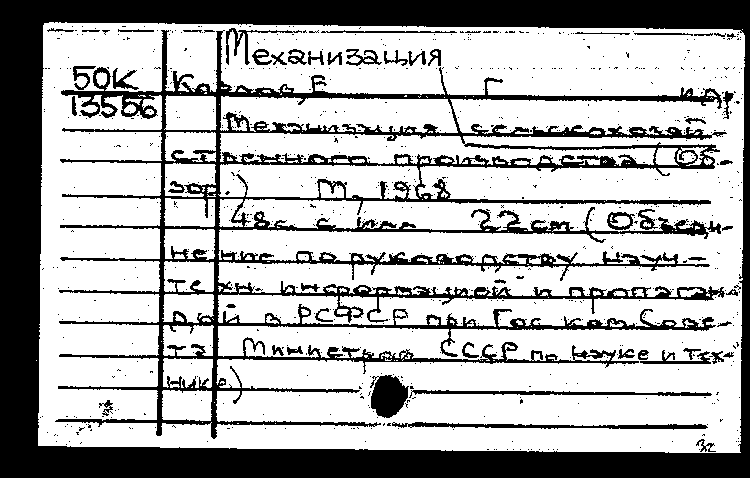 Механизация
50К
13556
Карпов, Е Г и др.
Механизация сельскохозяй-
ственного производства (Об-
зор.) М., 1968
48с. с илл 22 см (Объеди-
нение по руководству науч.-
техн. информацией и пропаган-
дой в РСФСР при Гос ком. Сове-
та Министров СССР по науке и тех-
нике)
32